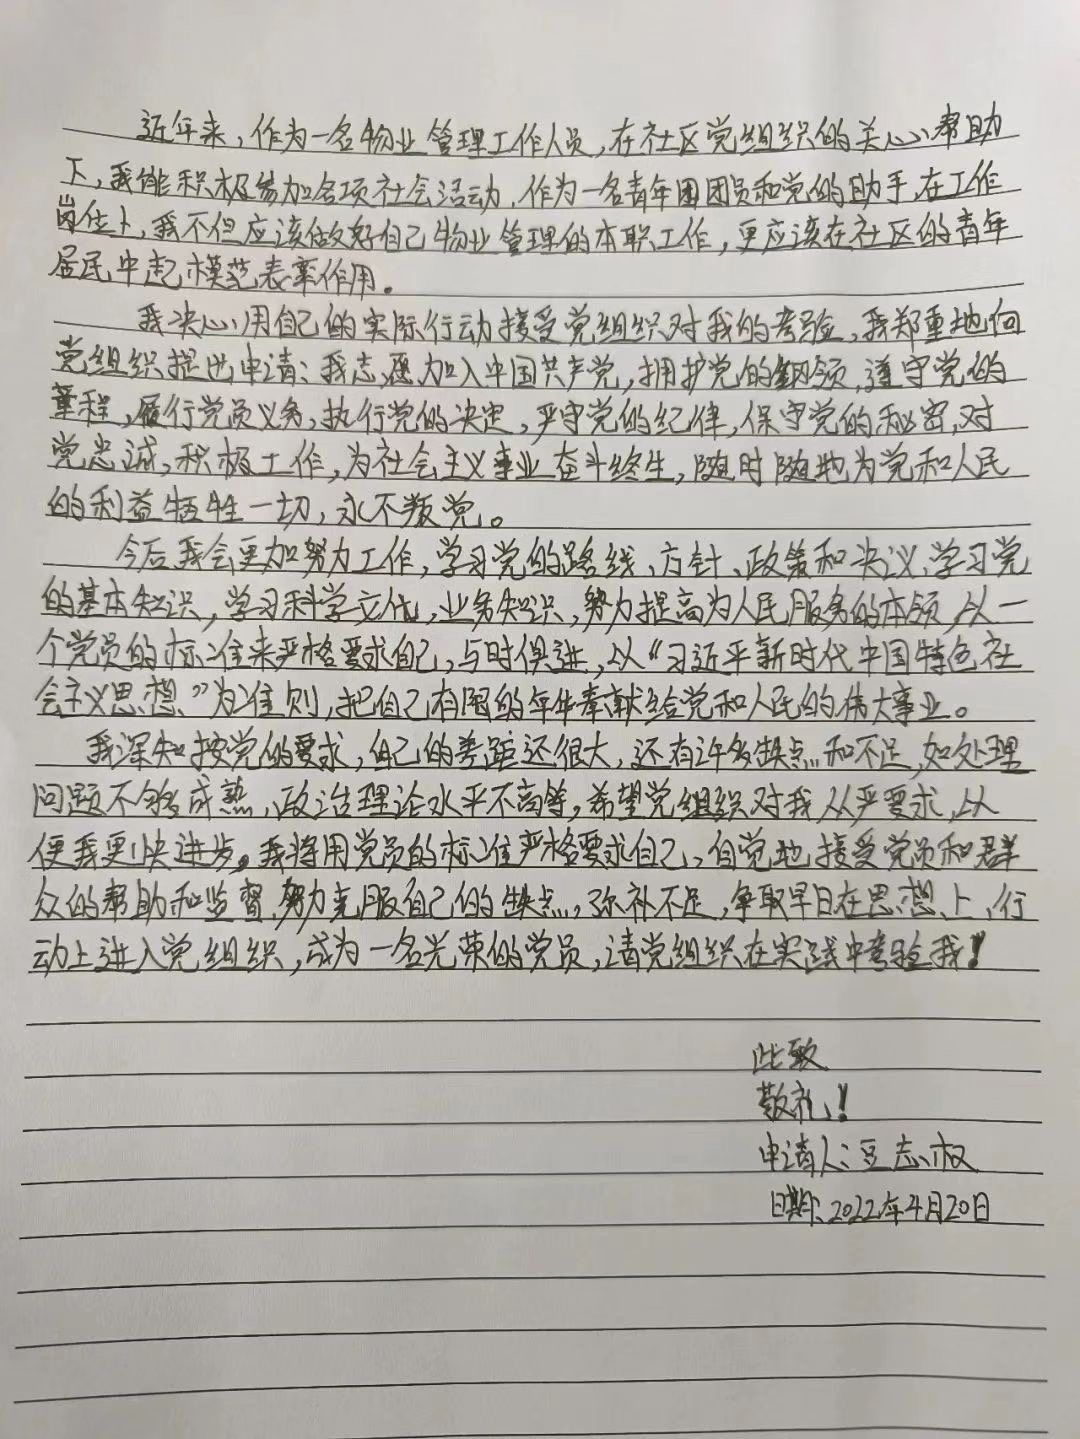 近年来，作为一名物业管理工作人员，在社区党组织的关心、帮助
下，我能积极参加各项社会活动，作为一名青年团团员和党的助手，在工作
岗位上，我不但应该做好自己物业管理的本职工作，更应该在社区的青年
居民中起模范表率作用。
我决心用自己的实际行动接受党组织对我的考验，我郑重地向
党组织提出申请：我志愿加入中国共产党，拥护党的纲领，遵守党的
章程，履行党员义务，执行党的决定，严守党的纪律，保守党的秘密，对
党忠诚，积极工作，为社会主义事业奋斗终生，随时随地为党和人民
的利益牺牲一切，永不叛党。
今后我会更加努力工作，学习党的路线、方针、政策和决议，学习党
的基本知识，学习科学文化，业务知识，努力提高为人民服务的本领，从一
个党员的标准来严格要求自己，与时俱进，以“习近平新时代中国特色社
会主义思想”为准则，把自己有限的年华奉献给党和人民的伟大事业。
我深知按党的要求，自己的差距还很大，还有许多缺点和不足，如处理
问题不够成熟，政治理论水平不高等，希望党组织对我从严要求，以
便我更快进步。我将用党员的标准严格要求自己，自觉地接受党员和群
众的帮助和监督，努力克服自己的缺点，弥补不足，争取早日在思想上，行
动上进入党组织，成为一名光荣的党员，请党组织在实践中考验我！
此致
敬礼！
申请人：豆志权
日期：2022年4月20日